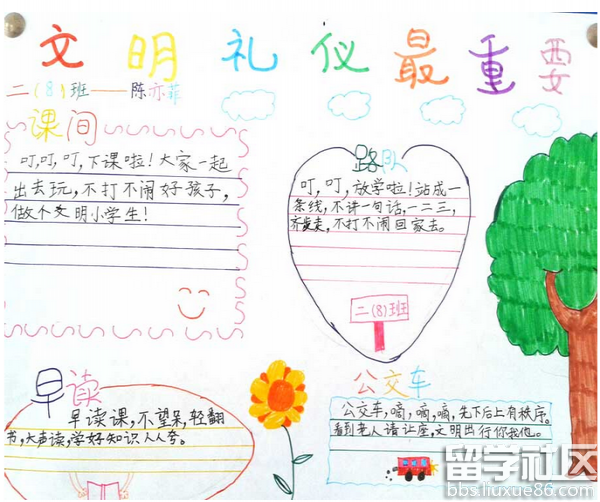 文明礼仪最重要
二(8)班——陈亦菲
课间
叮,叮,叮,下课啦!大家一起
出去玩,不打不闹好孩子,
做个文明小学生!
路队
叮,叮,放学啦!站成一
条线,不讲一句话,一二三,
齐步走,不打不闹回家去。
二(8)班
早读
早读课,不望呆,轻翻
书,大声读,学好知识人人夸。
公交车
公交车,嘀,嘀,嘀,先下后上有秩序。
看到老人请让座,文明出行你我他。
留学社区
bbs.liuxue86.com